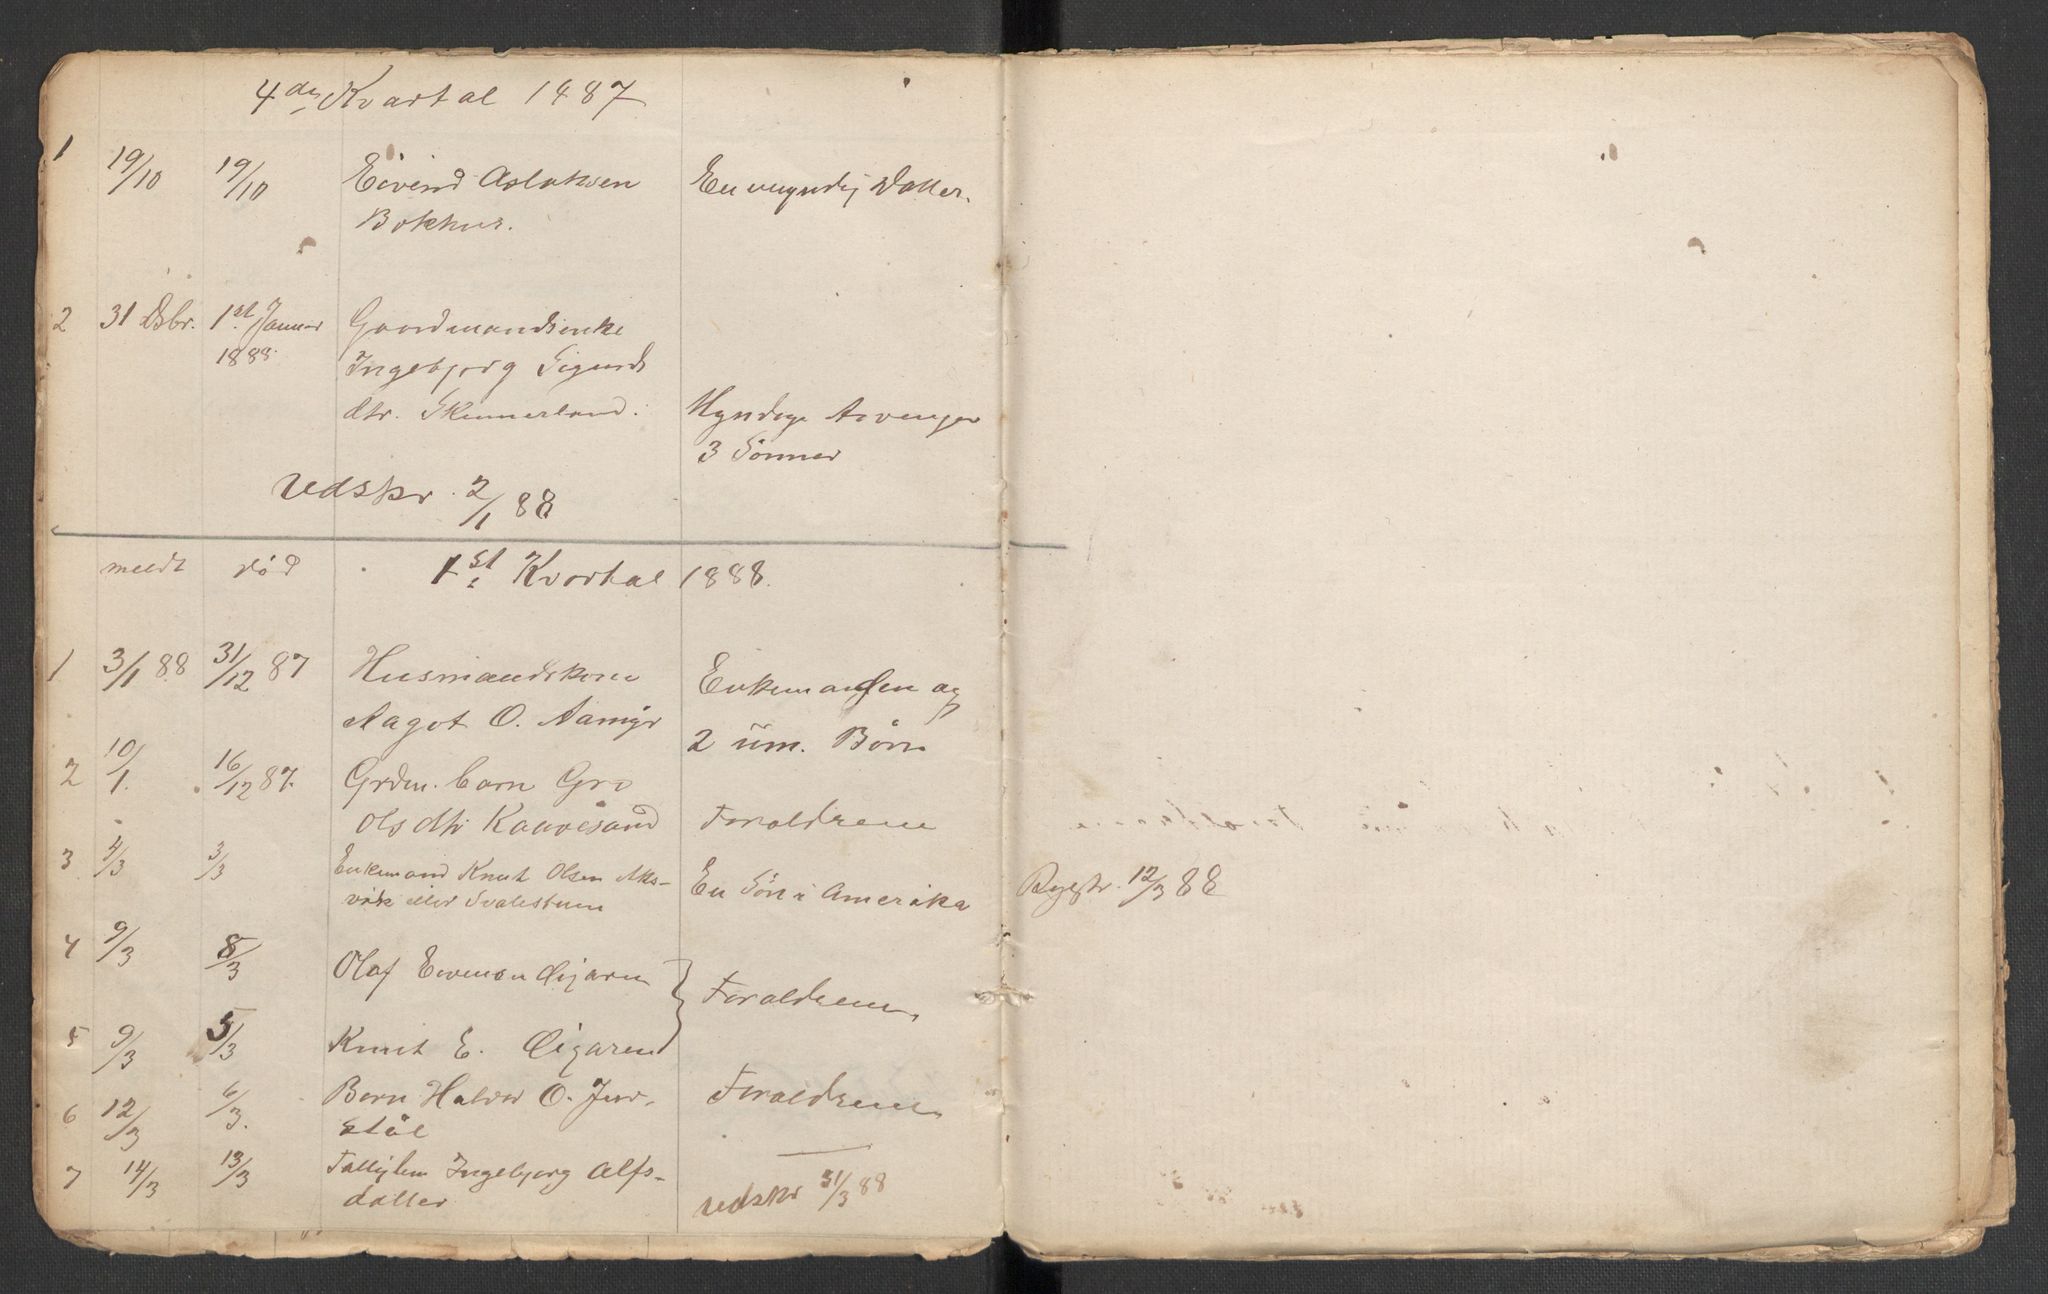 4de Kvartal 1887
1 19/10 19/10 Eivind Aslaksen En umyndig Datter.
Bokhus.
2 31 Dsbr. 1st Januar Gaardmandsenke
1888. Ingebjørg Sigurds
dtr. Skinnerland. Myndige Arvenger
3 Sönner
Udskr. 2/1 88
meldt död 1st Kvartal 1888.
1 3/1 88 31/12 87 Husmandskone Enkemanden og
Aagot O. 2 um. Børn
2 10/1. 16/12 87. Grdm. barn Gro
Olsdtr Kaavesand Foraldrene
3 4/3 3/3 Enkemand Knut Olsen
vik eller Svalestuen En Søn i Amerika Regstr. 12/3 88
4 9/3 8/3 Olaf Evensen Foraldrene
5 9/3 5/3 Knut E.
6 12/3 6/3. Barn Halvor O. Jore Foraldrene
støl
7 14/3 13/3 Fattiglem Ingebjørg Alfs-
datter udskr 31/3 88